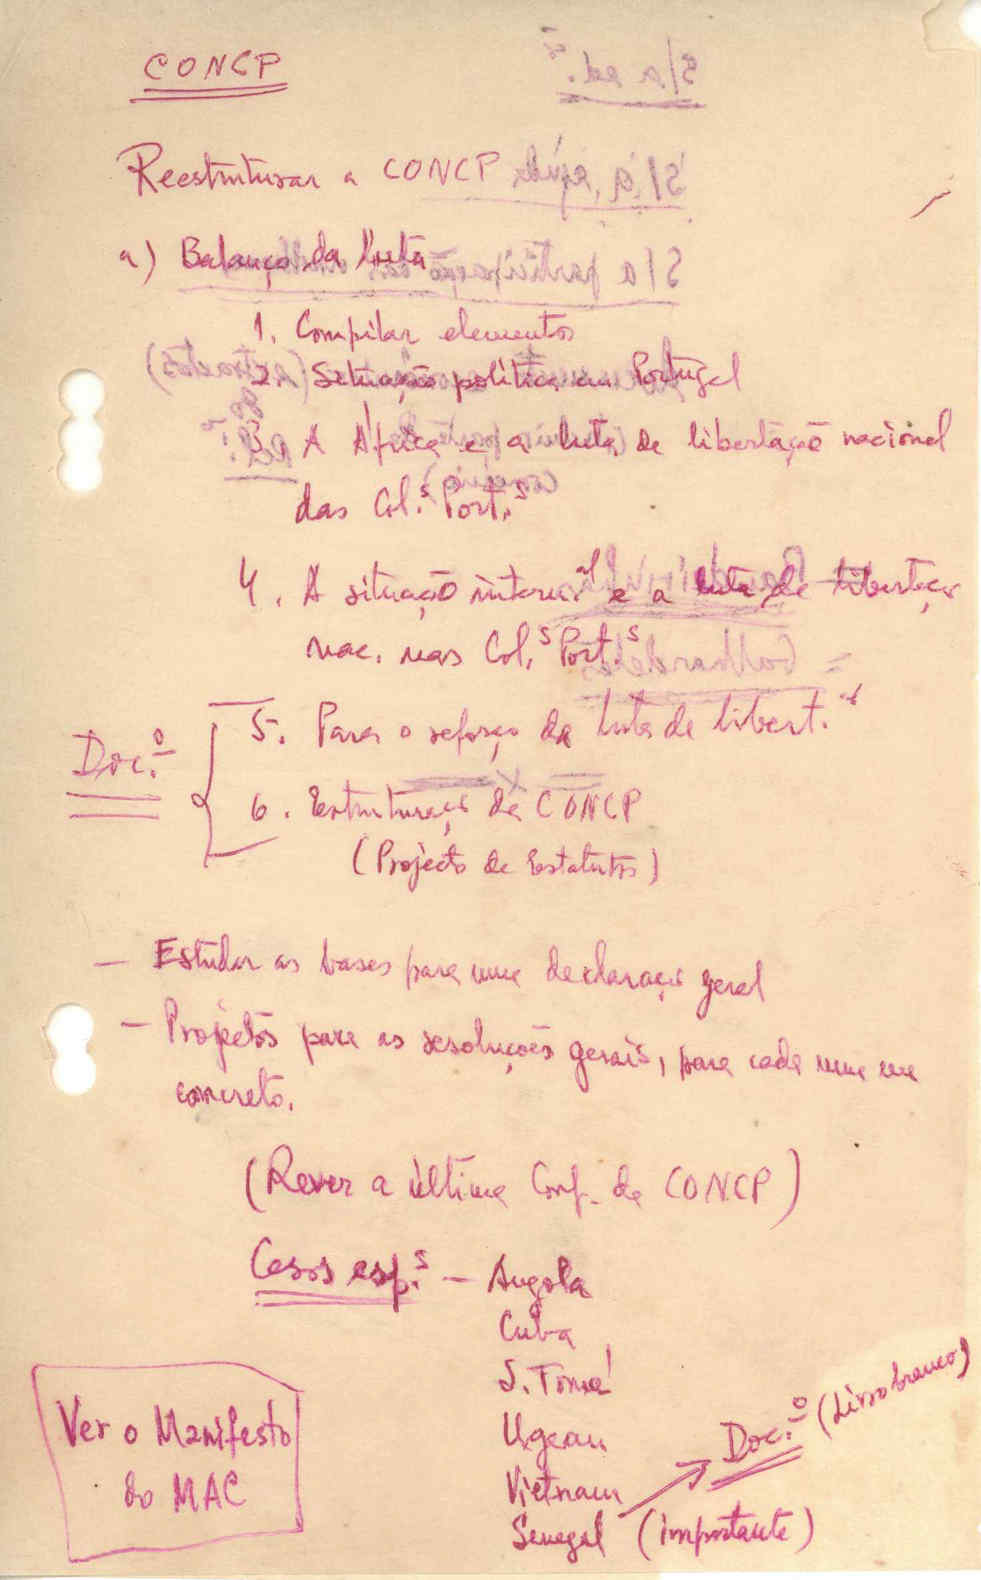 CONCP
Reestruturar a CONCP
a) Balanço da luta
1. Compilar elementos
2. Situação política em Portugal
3. A África e a luta de libertação nacional
das Col.s Port.s
4. A situação interna e a luta de libertação
nac. nas Col.s Port.s
5. Para o reforço da luta de libert.
Doc.º
6. Estruturação da CONCP
(Projecto de Estatutos)
— Estudar as bases para uma declaração geral
— Projectos para as resoluções gerais, para cada uma em
concreto.
(Rever a última Conf. da CONCP)
Casos esp.s — Angola
Cuba
S. Tomé
Vietnam
Senegal (importante)
Doc.º (Livro branco)
Ver o Manifesto
do MAC